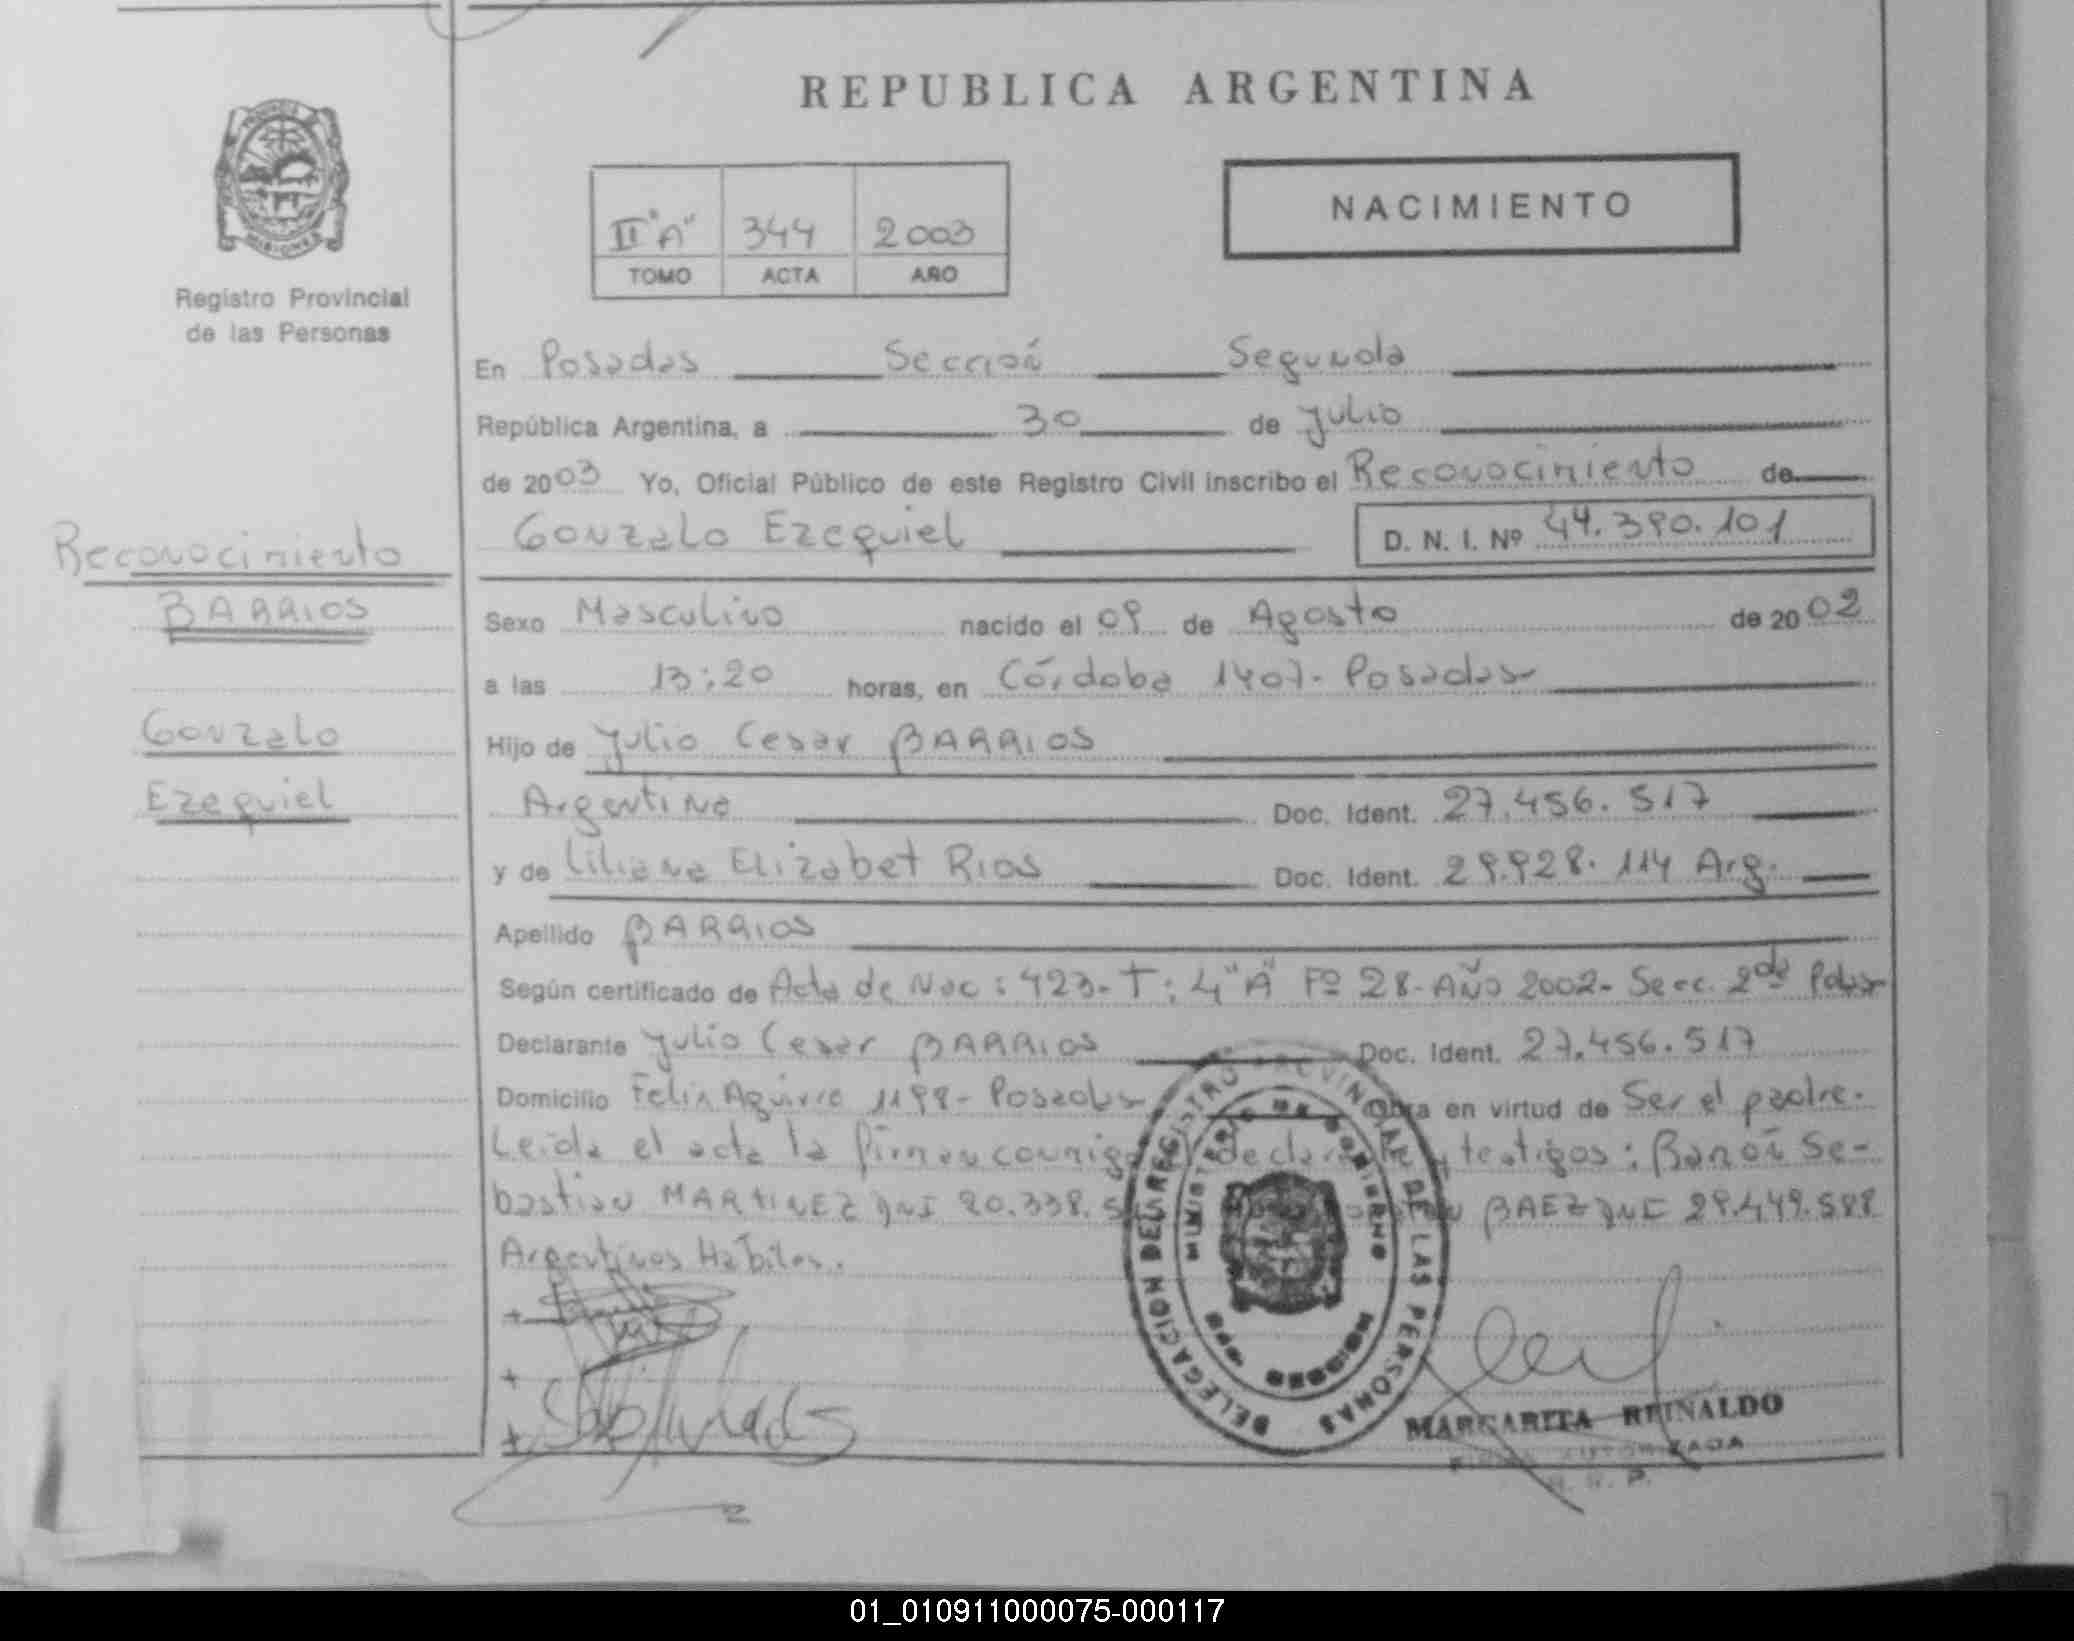 REPUBLICA ARGENTINA
PROVINCIA
MISIONES
Registro Provincial
de las Personas
NACIMIENTO
II "A" 344 2003
TOMO ACTA AÑO
En Posadas Sección Segunda
República Argentina, a 30 de Julio
de 2003 Yo, Oficial Público de este Registro Civil inscribo el Reconocimiento de
Gonzalo Ezequiel D. N. I. Nº 44.390.101
Reconocimiento
BARRIOS
Gonzalo
Ezequiel
Sexo Masculino nacido el 09 de Agosto de 2002
a las 13:20 horas, en Córdoba 1407- Posadas
Hijo de Julio Cesar BARRIOS
Argentina Doc. Ident. 27.456.517
y de Liliana Elizabet RIOS Doc. Ident. 29.928.114 Arg.
Apellido BARRIOS
Según certificado de Acta de Nac: 423- T: 4 "A" Fº 28- AÑO 2002- Secc. 2da Pdas
Declarante Julio Cesar BARRIOS Doc. Ident. 27.456.517
Domicilio Felix Aguirre 1198- Posadas Obra en virtud de Ser el padre.
Leida el acta la firman conmigo declarante y testigos: Ramón Se-
bastian MARTINEZ DNI 20.338. BAEZ DNI 29.449.588
Argentinos Habiles.
DELEGACION DEL REGISTRO PROVINCIAL DE LAS PERSONAS
MINISTERIO DE GOBIERNO
MISIONES
MARGARITA REINALDO
FIRMA AUTORIZADA
R. P.
01_010911000075-000117